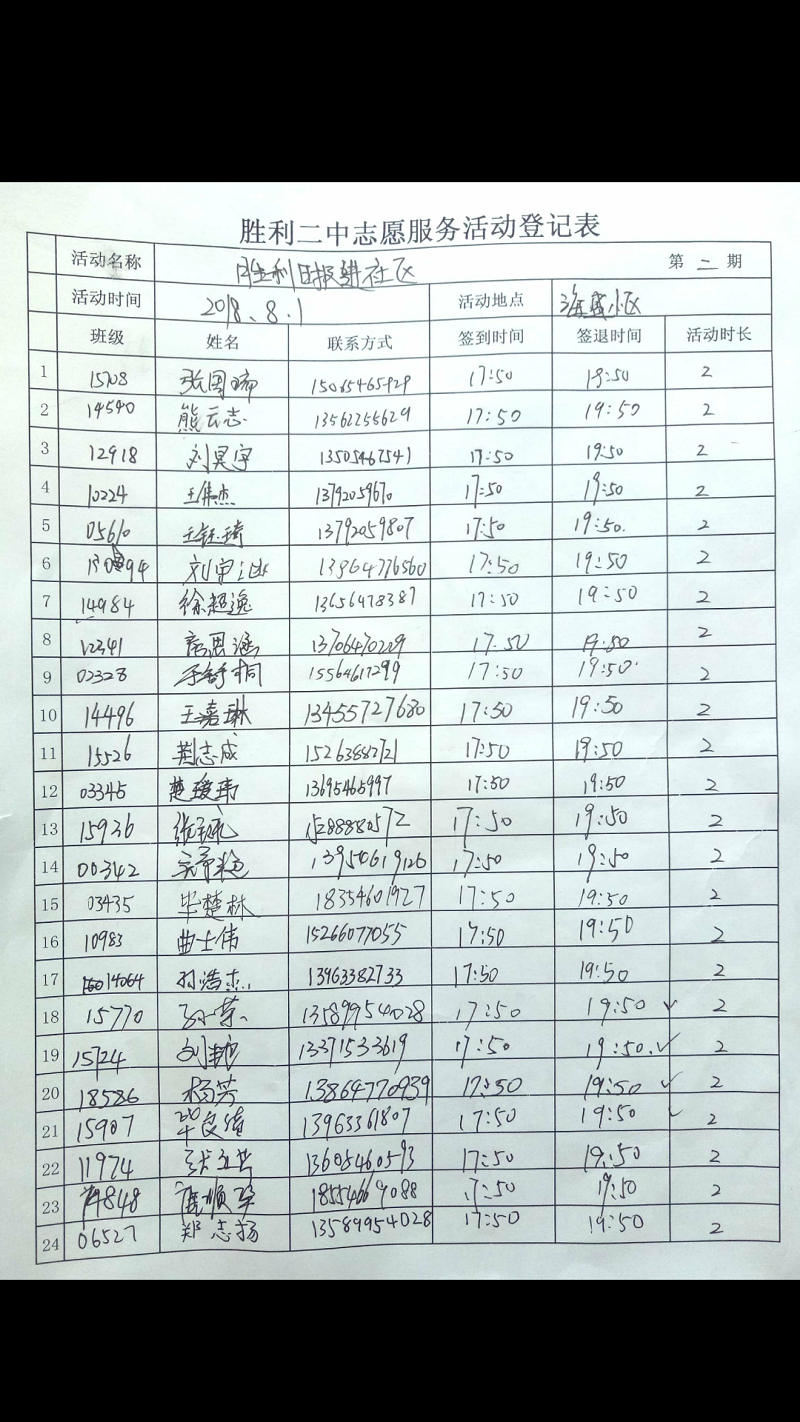 胜利二中志愿服务活动登记表
活动名称 胜利日报进社区 第 二 期
活动时间 2018、8.1 活动地点 海盛小区
班级 姓名 联系方式 签到时间 签退时间 活动时长
1 15708 15065465929 17:50 19:50 2
2 14540 熊云志 13562255629 17:50 19:50 2
3 12918 刘昊宇 13505467541 17:50 19:50 2
4 10224 王伟杰 13792059670 17:50 19:50 2
5 05610 王钰琦 13792059807 17:50 19:50. 2
6 刘 13964776560 17:50 19:50 2
7 14984 徐超逸 13656478387 17:50 19:50 2
8 12341 思涵 13706470229 17.50 19:50 2
9 02328 于舒桐 15564617299 17:50 19:50. 2
10 14496 王嘉琳 13455727680 17:50 19:50 2
11 15526 荆志成 15263882721 17:50 19:50 2
12 03345 楚瑷玮 13695465997 17:50 19:50 2
13 15936 张 15288880572 17:50 19:50 2
14 00342 13950619126 17:50 19:50 2
15 03435 毕楚林 18354601927 17:50 19:50 2
16 10983 曲士伟 15266077055 17:50 19:50 2
17 14064 孙浩杰 13963382733 17:50 19:50 2
18 15770 孙荣 13589954028 17:50 19:50 ✓ 2
19 15724 刘艳 13371533619 17:50 19:50. ✓ 2
20 18586 杨芳 13864770939 17:50 19:50 ✓ 2
21 15907 毕文倩 13963361807 17:50 19:50 ✓ 2
22 11974 张立英 13605460593 17:50 19:50 2
23 14848 顺 18554669088 17:50 19:50 2
24 06527 郑志扬 13589954028 17:50 19:50 2